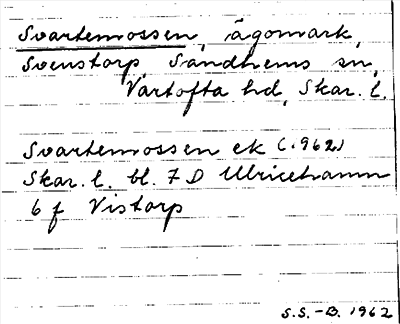 Svartemossen, ägomark,
Svenstorp Sandhems sn,
Vartofta hd, Skar. l.
Svartemossen ek (1962)
Skar. l. bl. 7 D Ulricehamn
6 f Vistorp
S.S.-B. 1962